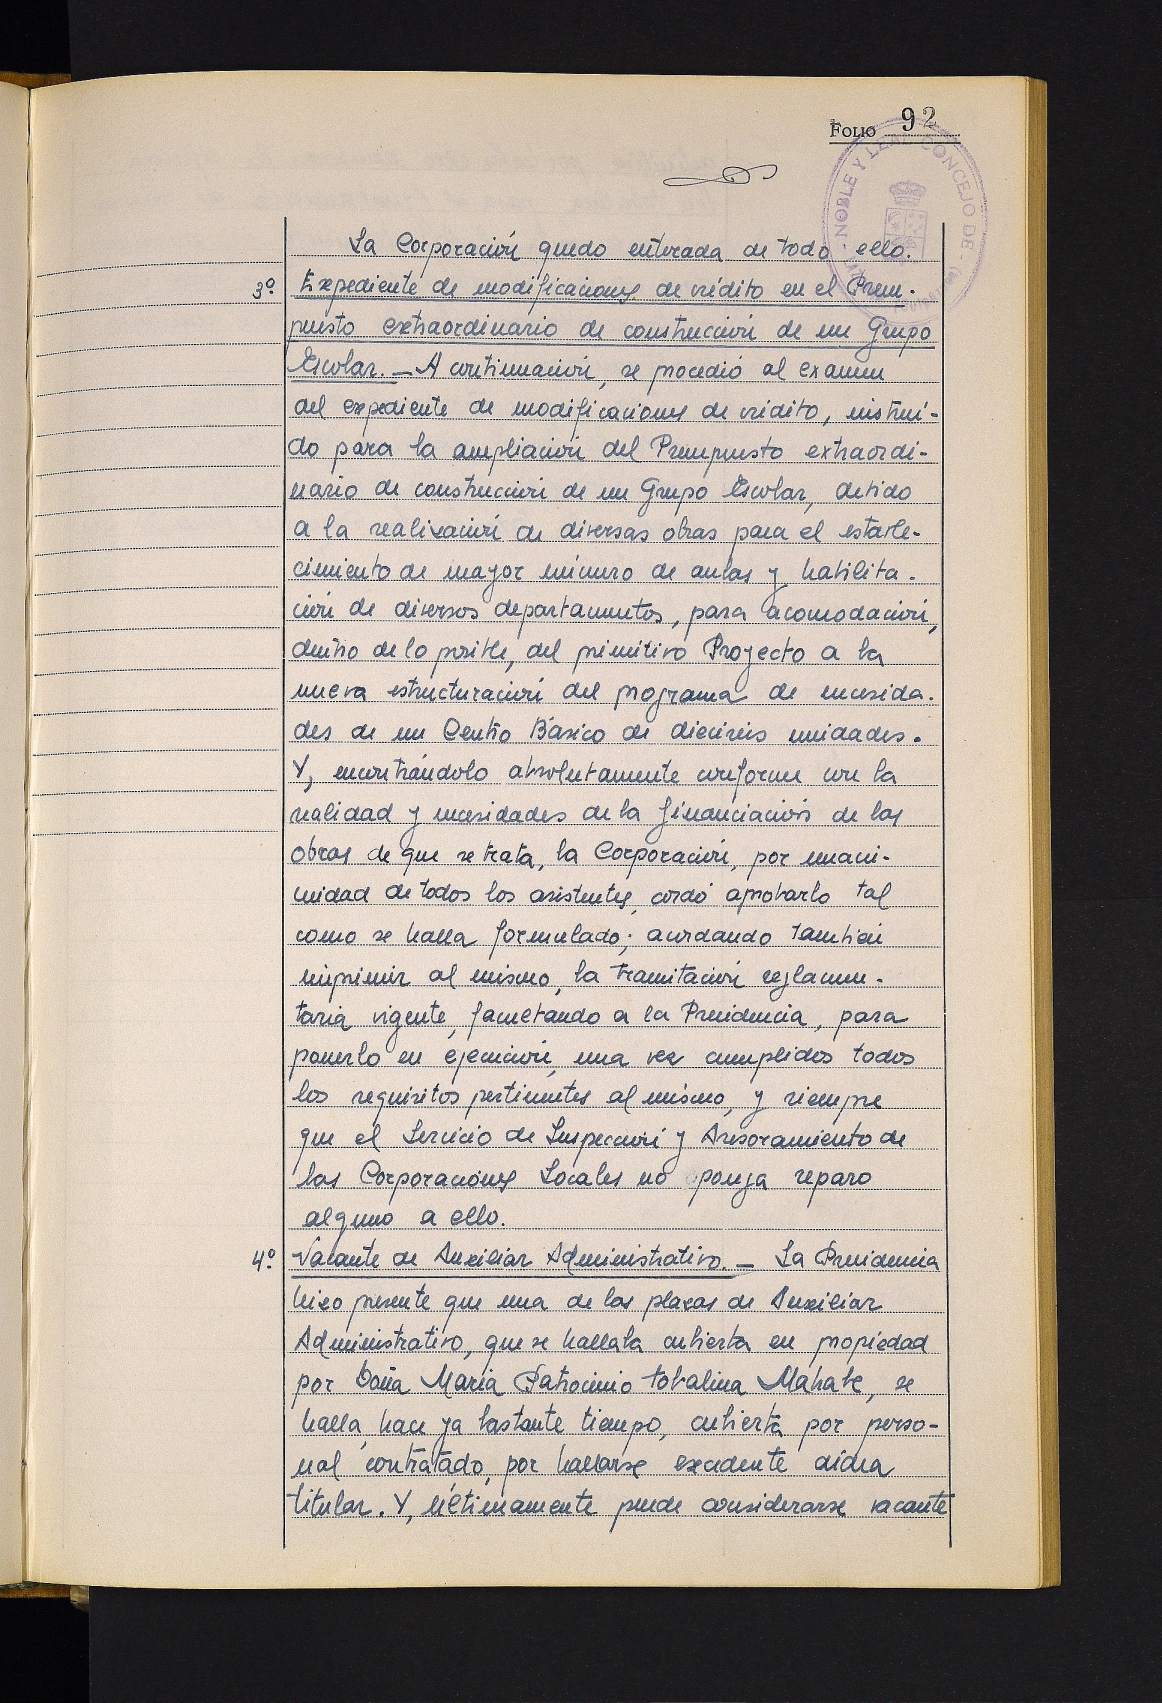 FOLIO 92
NOBLE Y LEAL CONCEJO DE
La Corporación quedo enterada de todo ello.
3º Expediente de modificaciones de crédito en el Presu-
puesto extraordinario de construcción de un Grupo
Escolar. — A continuación, se procedió al examen
del expediente de modificaciones de crédito, instrui-
do para la ampliación del Presupuesto extraordi-
nario de construcción de un Grupo Escolar, debido
a la realización de diversas obras para el estable-
cimiento de mayor número de aulas y habilita-
ción de diversos departamentos, para acomodación,
dentro de lo posible, del primitivo Proyecto a la
nueva estructuración del programa de necesida-
des de un Centro Básico de dieciseis unidades.
Y, encontrándolo absolutamente conforme con la
realidad y necesidades de la financiación de las
obras de que se trata, la Corporación, por unani-
midad de todos los asistentes, cordó aprobarlo tal
como se halla formulado; acordando también
imprimir al mismo, la tramitación reglamen-
taria vigente, facultando a la Presidencia, para
ponerlo en ejecución, una vez cumplidos todos
los requisitos pertinentes al mismo, y siempre
que el Servicio de Inspección y Asesoramiento de
las Corporaciones Locales no oponga reparo
alguno a ello.
4º Vacante de Auxiliar Administrativo. — La Presidencia
hizo presente que una de las plazas de Auxiliar
Administrativo, que se hallaba cubierta en propiedad
por Doña María Patrocinio Tobalina Mahabe, se
halla, hace ya bastante tiempo, cubierta por perso-
nal contratado, por hallarse excedente dicha
titular. Y, últimamente puede considerarse vacante